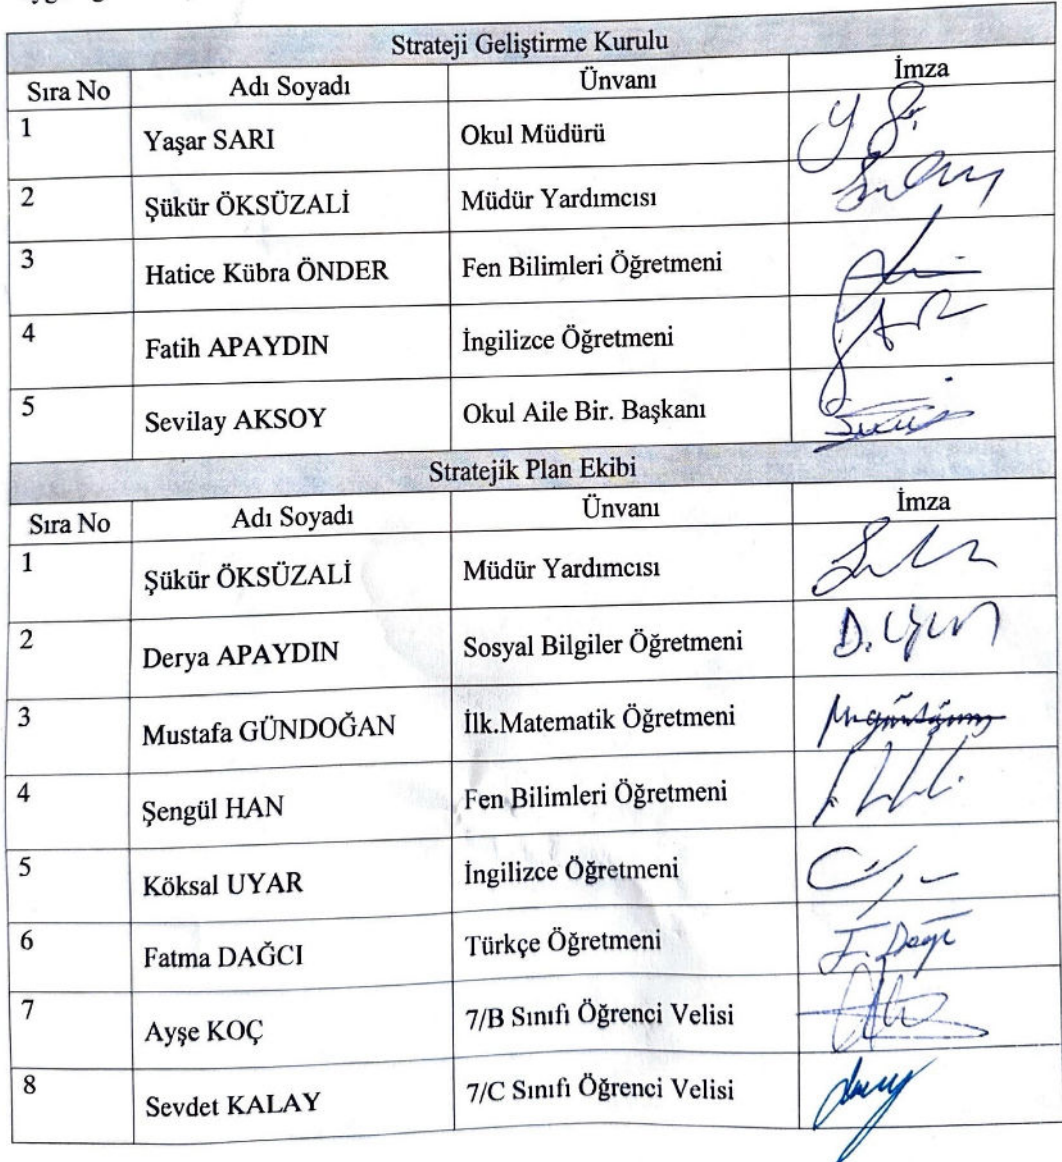 Strateji Geliştirme Kurulu
Sıra No Adı Soyadı Ünvanı İmza
1 Yaşar SARI Okul Müdürü
2 Şükür ÖKSÜZALİ Müdür Yardımcısı
3 Hatice Kübra ÖNDER Fen Bilimleri Öğretmeni
4 Fatih APAYDIN İngilizce Öğretmeni
5 Sevilay AKSOY Okul Aile Bir. Başkanı
Stratejik Plan Ekibi
Sıra No Adı Soyadı Ünvanı İmza
1 Şükür ÖKSÜZALİ Müdür Yardımcısı
2 Derya APAYDIN Sosyal Bilgiler Öğretmeni
3 Mustafa GÜNDOĞAN İlk.Matematik Öğretmeni
4 Şengül HAN Fen Bilimleri Öğretmeni
5 Köksal UYAR İngilizce Öğretmeni
6 Fatma DAĞCI Türkçe Öğretmeni
7 Ayşe KOÇ 7/B Sınıfı Öğrenci Velisi
8 Sevdet KALAY 7/C Sınıfı Öğrenci Velisi